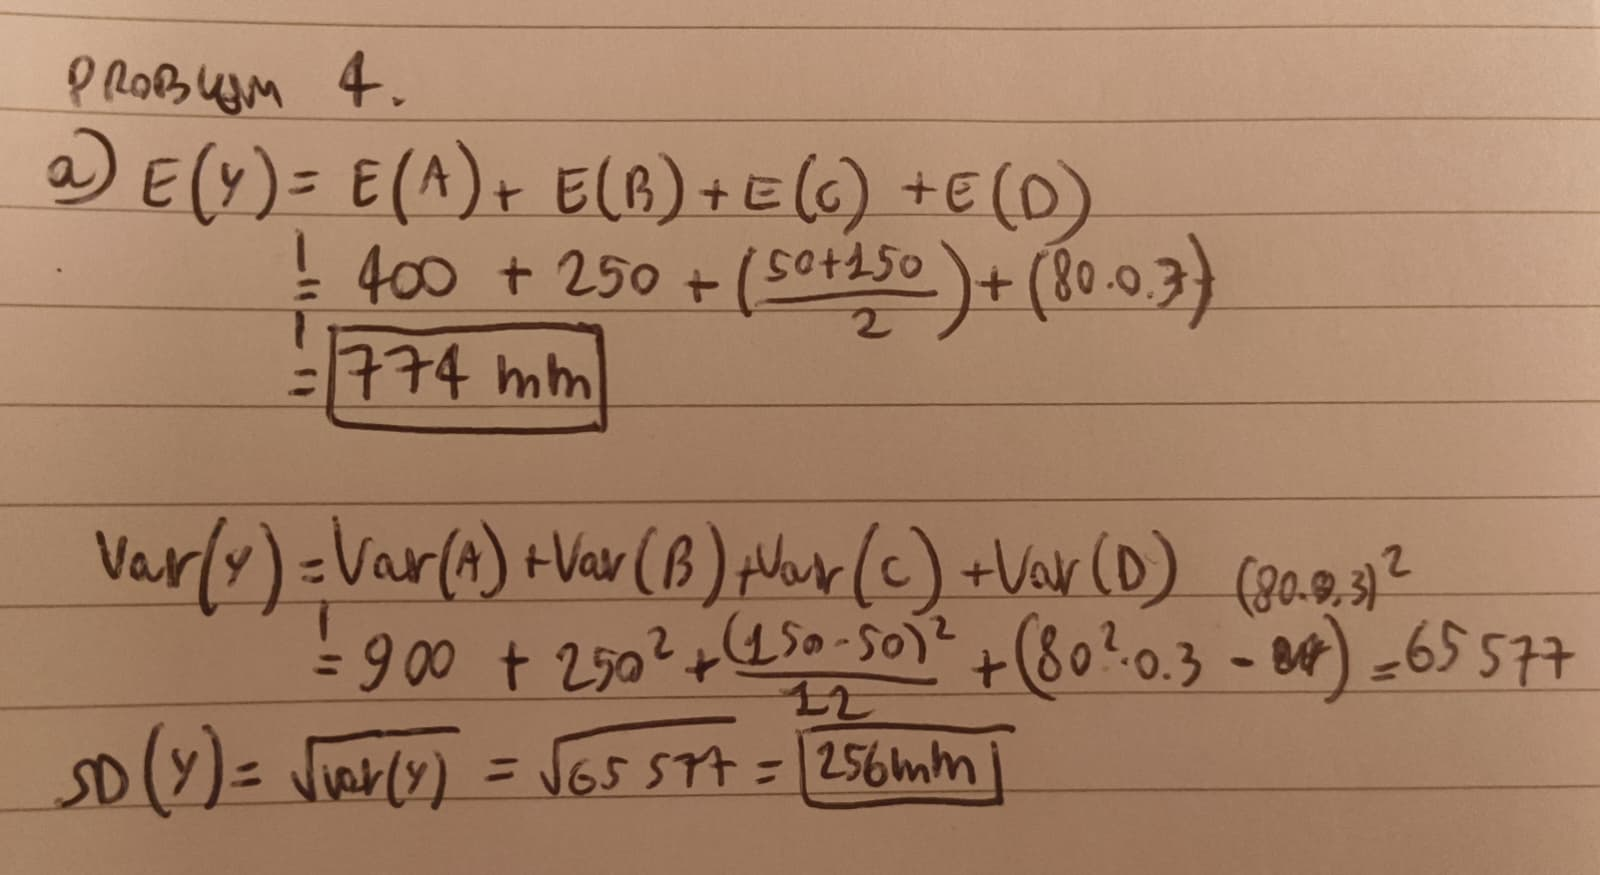 PROBLEM 4.
a) E(Y) = E(A) + E(B) + E(C) + E(D)
= 400 + 250 + (50+150 / 2) + (80·0.3)
= 774 mm
Var(Y) = Var(A) + Var(B) + Var(C) + Var(D) (80·0.3)²
= 900 + 250² + (150-50)² / 12 + (80²·0.3 - ) = 65 577
SD(Y) = √Var(Y) = √65 577 = 256mm